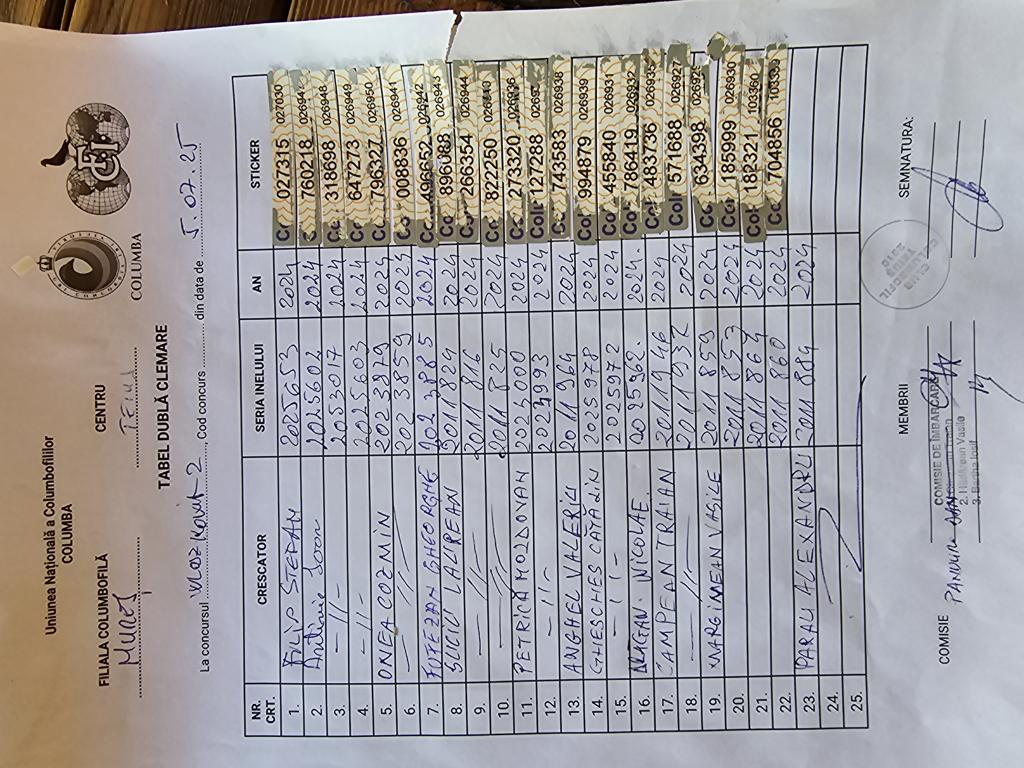 Uniunea Națională a Columbofililor
COLUMBA
FILIALA COLUMBOFILĂ
CENTRU
MUREȘ
COLUMBA
TABEL DUBLĂ CLEMARE
La concursul Wloszkowice 2, Cod concurs din data de 5.07.25
NR. CRT. CRESCATOR SERIA INELULUI AN STICKER
1. FILIP STEFAN 2025653 2024 027315 027030
2. Ioan 2025602 2024 760218
3. -//- 2053017 2024 318698 026948
4. -//- 2025603 2024 647273 026949
5. ONEA COZMIN 2023879 2024 796327 026950
6. -//- 2023859 2024 008836 026941
7. FUTEZAN GHEORGHE 2024
8. SUCIU LAUREAN 2011824 2024
9. -//- 2011816 2024 266354 026944
10. -//- 2011825 2024 822250
11. PETRICA MOLDOVAN 2023000 2024 273320
12. -//- 2023993 2024 127288
13. ANGHEL VALERIU 2011964 2024 743583 026938
14. GHESCHES CĂTĂLIN 2025978 2024 994879 026939
15. -//- 2025972 2024 455840 026931
16. DRAGAN NICOLAE 2025962. 2024. 786419 026932
17. CAMPEAN TRAIAN 2011946 2024 483736 026933
18. -//- 2011932 2024 571688 026927
19. MARGIMEAN VASILE 2011859 2024 634398 026928
20. 2011853 2024 185999 026930
21. 2011864 2024 162321 103360
22. 2011860 2024 704856
23. PARAU ALEXANDRU 2011884 2024
24.
25.
COMISIE
MEMBRII
SEMNATURA:
COMISIE DE IMBARCARE